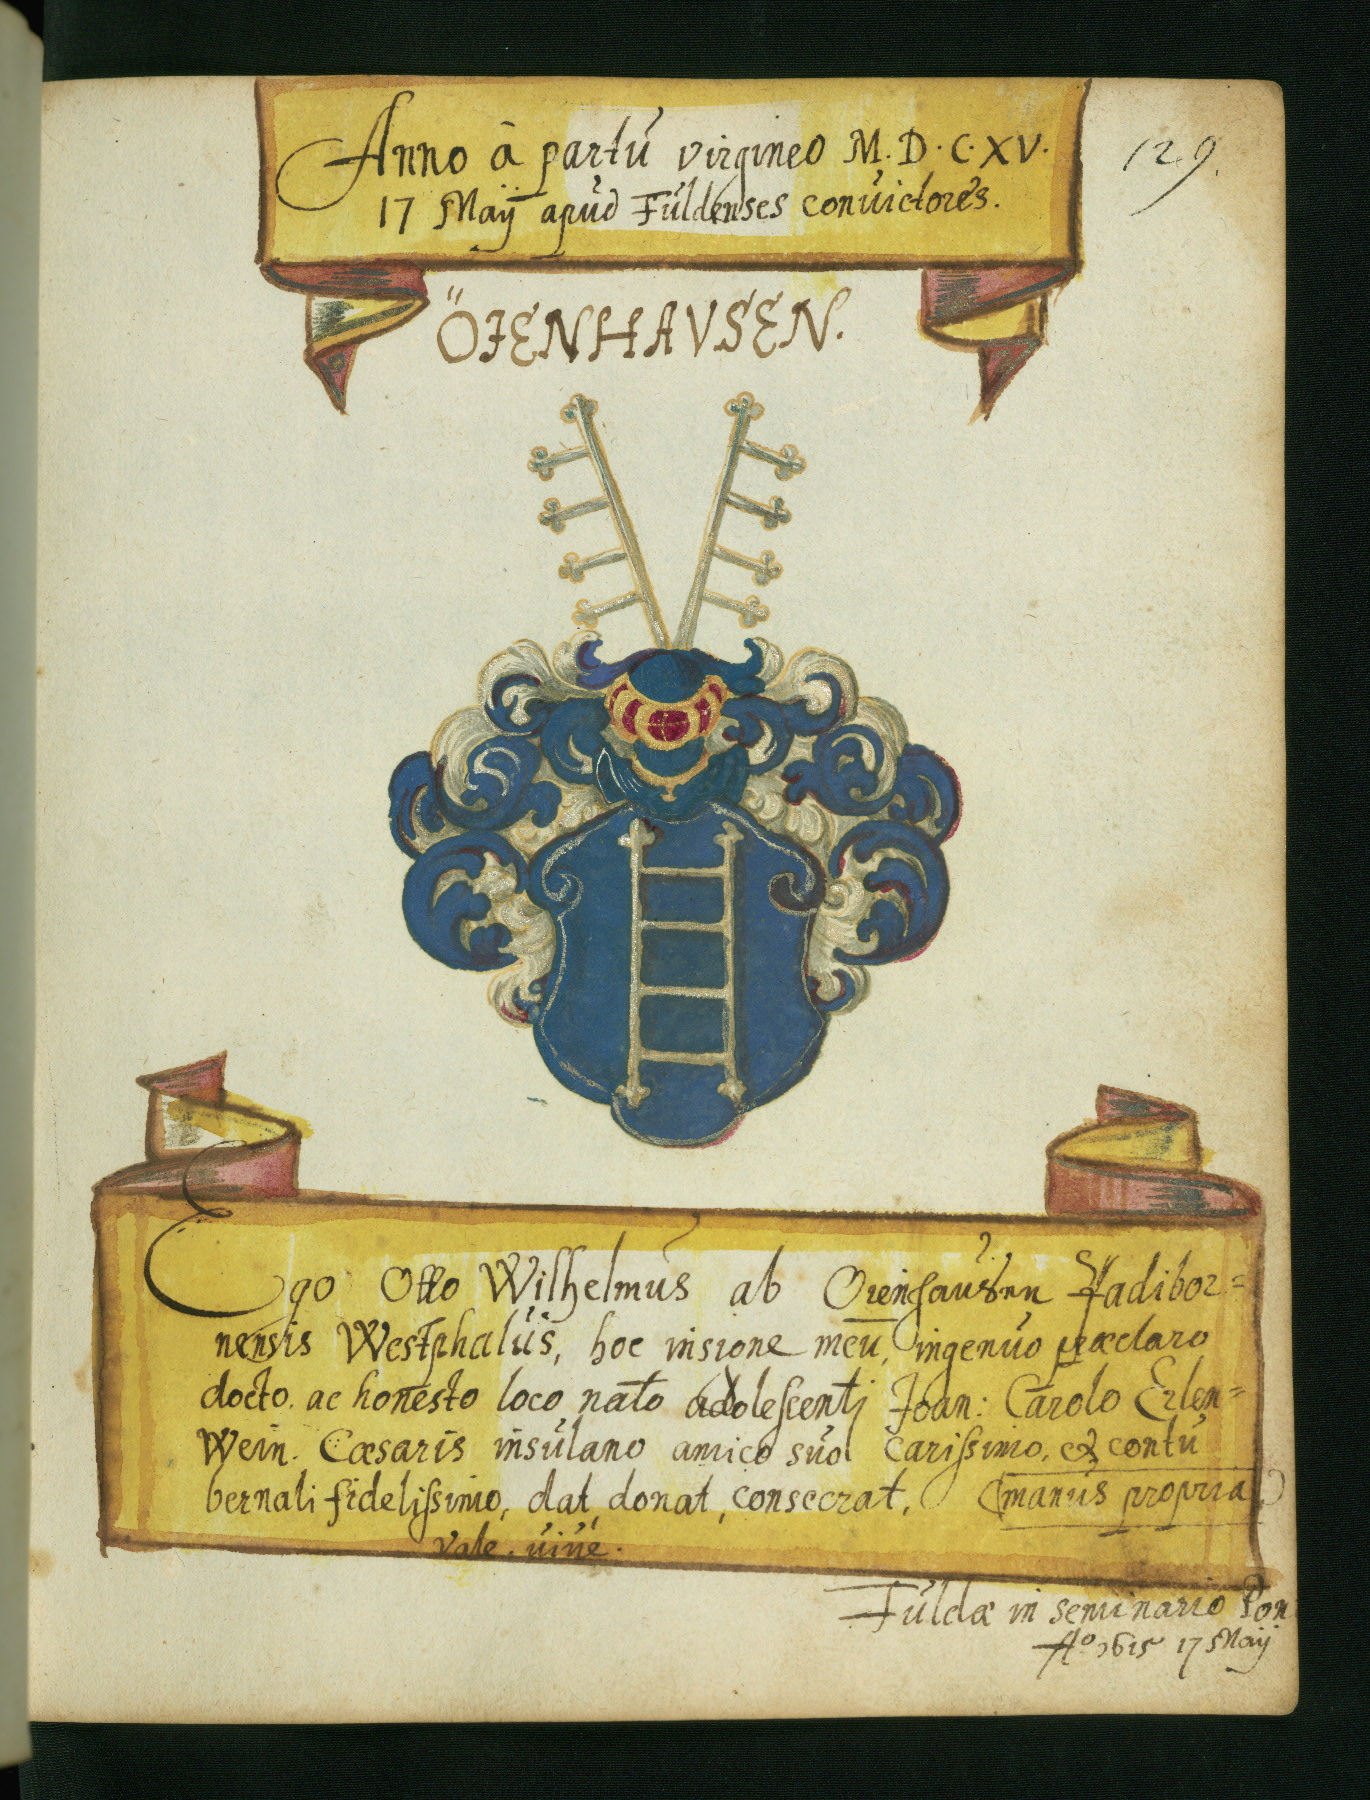 Anno à partu virgineo M.D.C.XV.
129.
17 Maÿ apud Fuldenses convictores.
ÖIENHAVSEN.
Ego Otto Wilhelmus ab Oienhausen Padibor=
nensis Westphalus, hoc insione meū, ingenuo præclaro
docto. ac honesto loco nato adolescenti Joan: Carolo Erlen=
Wein. Cæsaris insulano amico suo carissimo, & contu
bernali fidelissimo, dat, donat, consecrat, manus propria
vale. vive.
Fuldæ in seminario Pon
Aº 1615 17 Maÿ